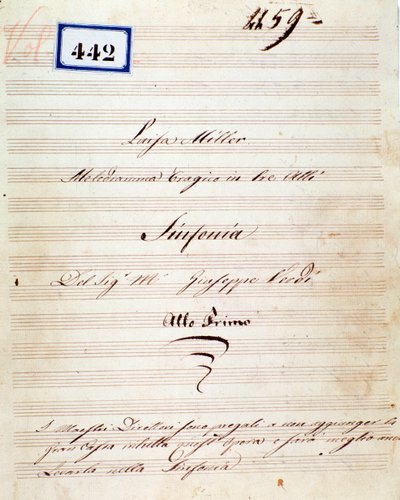 Vol
442
59=
Luisa Miller
Melodramma tragico in tre Atti
Sinfonia
Del Sigr Mo Giuseppe Verdi
Atto Primo
I Maestri Direttori sono pregati a non aggiunger la
gran Cassa in tutta quest'opera e sarà meglio anco
levarla nella Sinfonia